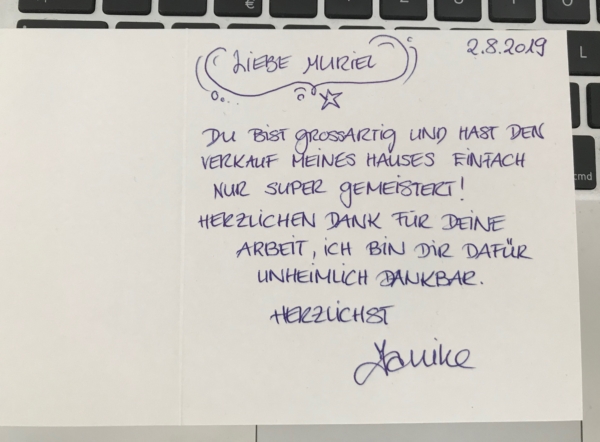 LIEBE MURIEL
2.8.2019
DU BIST GROSSARTIG UND HAST DEN
VERKAUF MEINES HAUSES EINFACH
NUR SUPER GEMEISTERT!
HERZLICHEN DANK FÜR DEINE
ARBEIT, ICH BIN DIR DAFÜR
UNHEIMLICH DANKBAR.
HERZLICHST
€
L
cmd